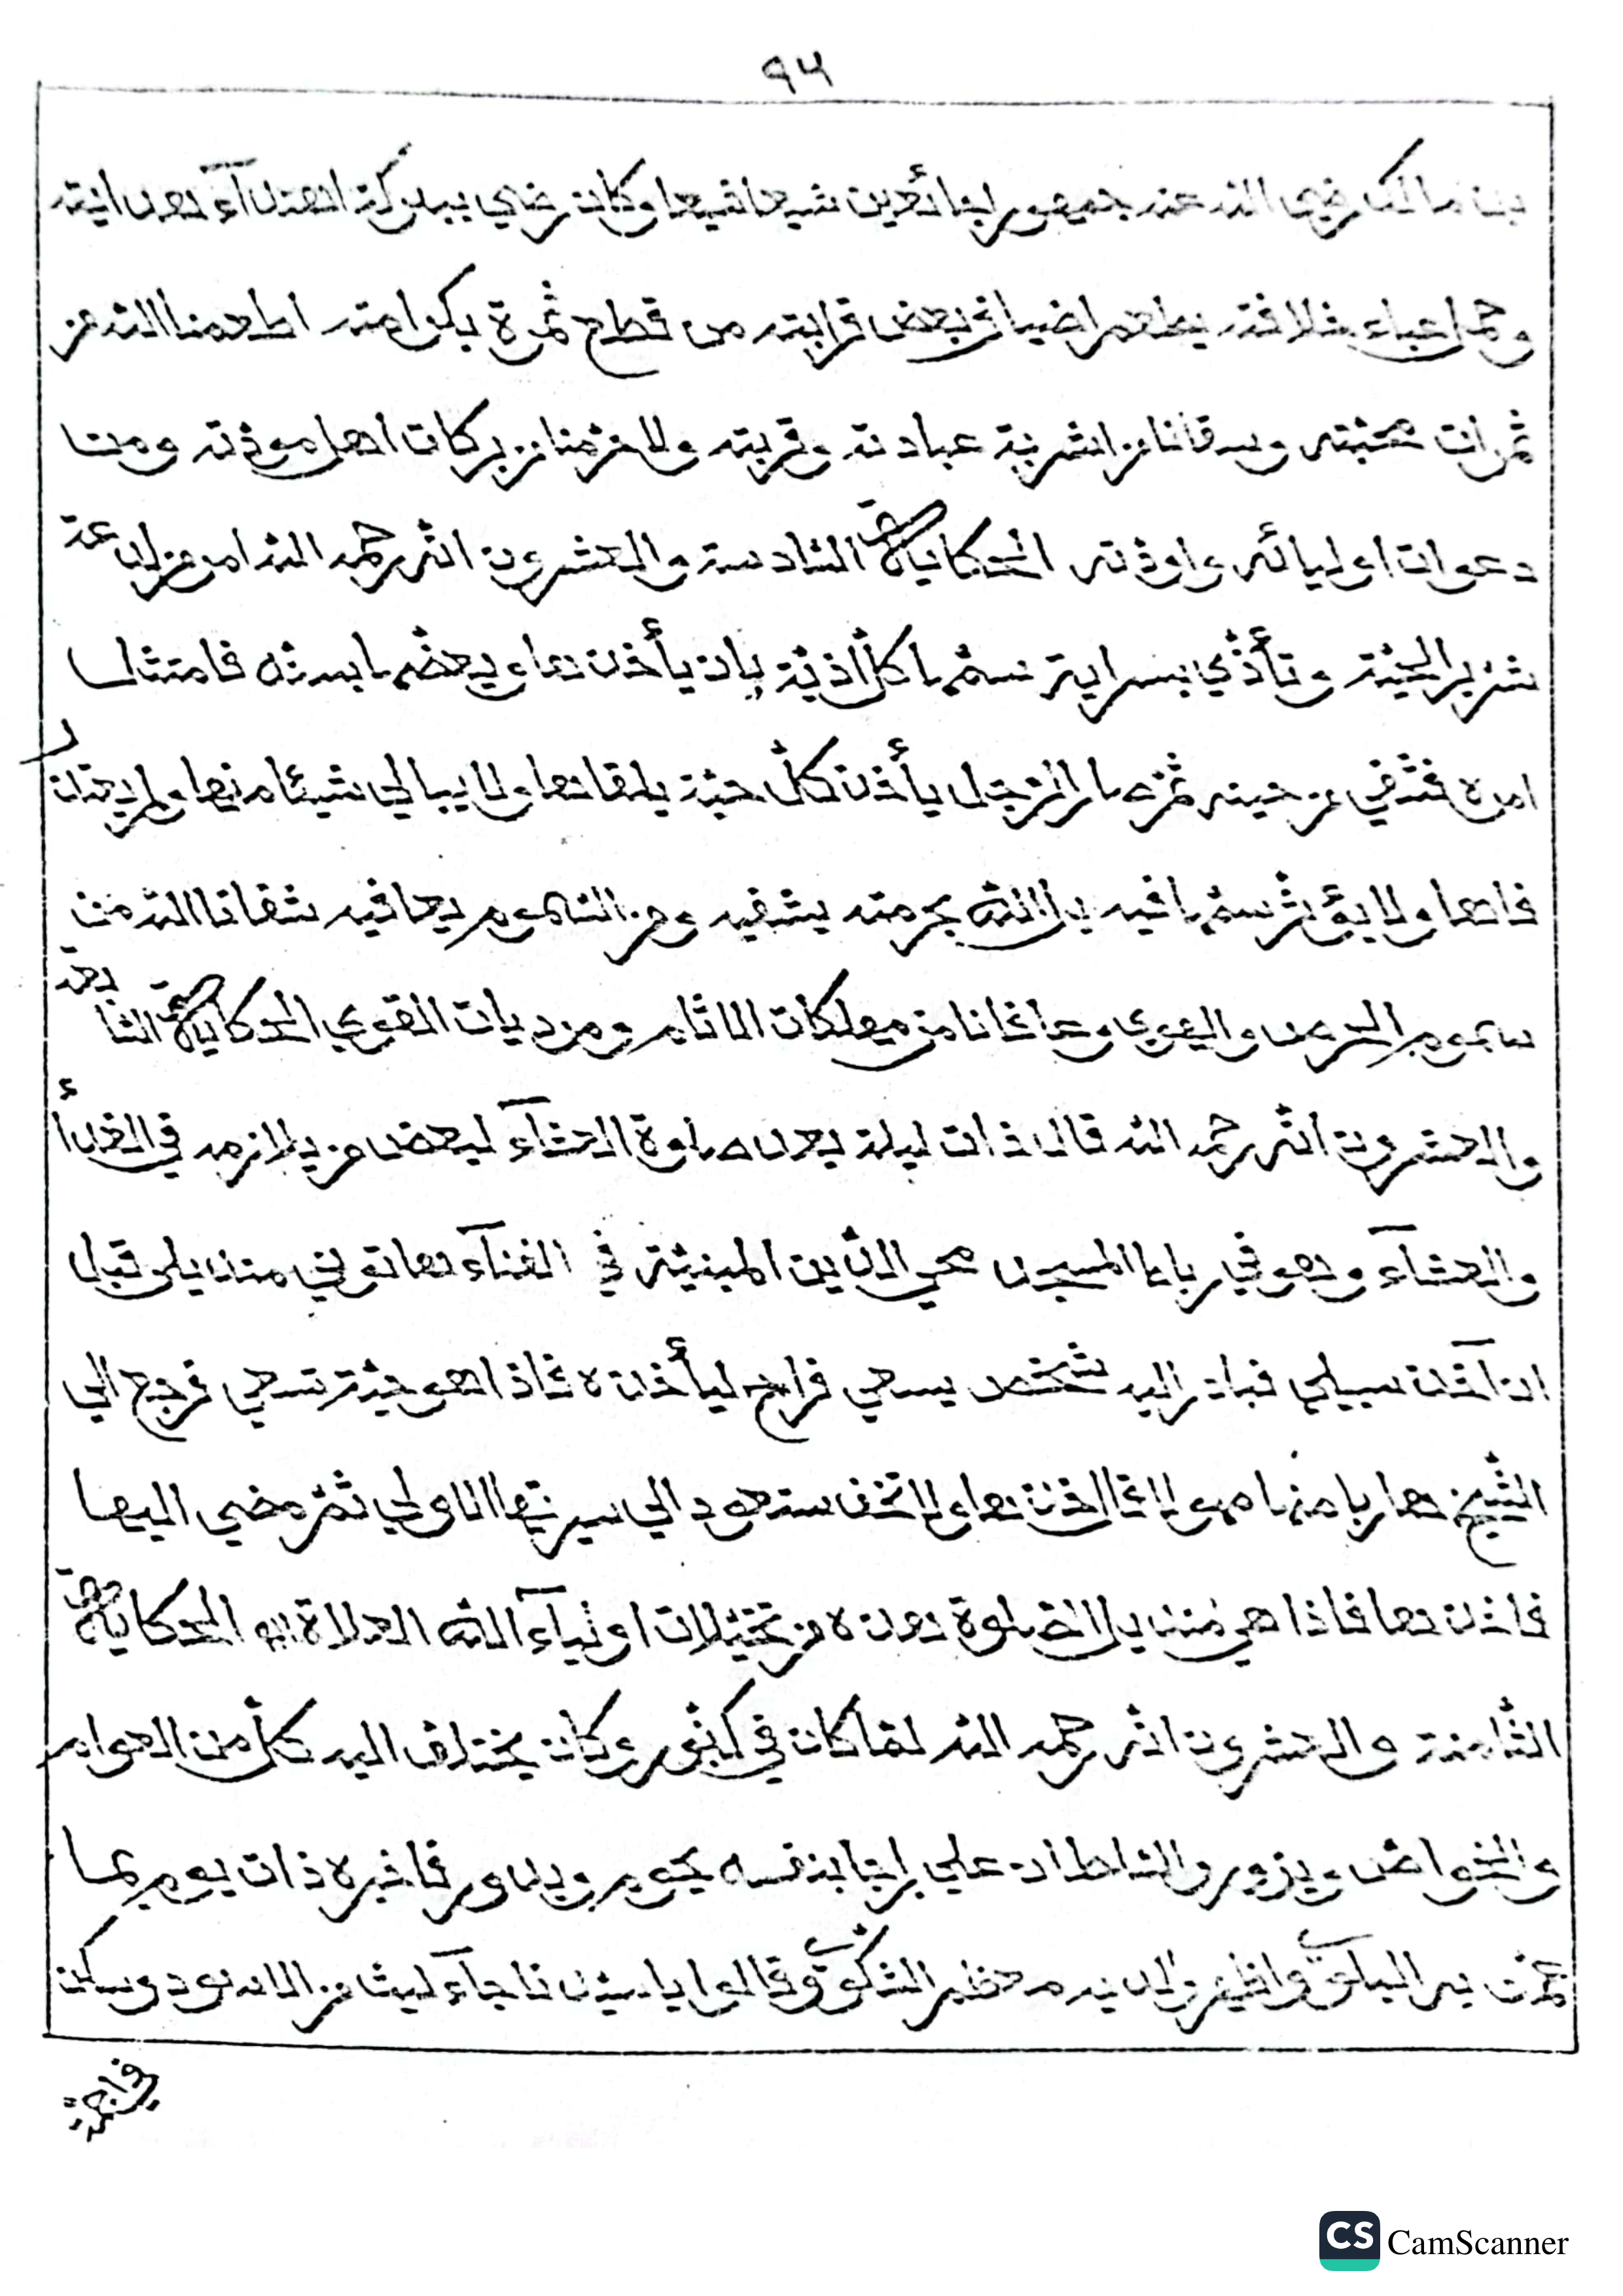 ٩٤
بن مالك رضي الله عنه جمهور لها تعين شيعا فشيعا وكان رضي ببركة اهتداء هدايته
وحماعباء خلافته يطعم اضياف بعض قرابته من قطع ثمرة بكرامته اطعمنا الله من
ثمرات محبته وسقانا من اشربة عبادته وقربته ولا حرمنا من بركات اهل مودته ومن
دعوات اوليائه واودته الحكاية السادسة والعشرون انه رحمه الله امر من لدغته
شرير الحية وتأذي بسراية سم ما كل اذية بان يأخذها ويعض ما بسته فامتثل
امره فشفي من حينه ثم صار الرجل يأخذ كل حية يلقاها ولا يبالي شيئا منها ولم يقدر ان
فاها ولا يؤثر سم ما فيه بل الله بحرمته يشفيه ومن السموم يعافيه شفانا الله من
سموم الحرص والهوى وعافانا من مهلكات الاثام ومرديات القوي الحكاية السابعة
والعشرون انه رحمه الله قال ذات ليلة بعد صلوة العشاء لبعض من يلازمه في الغداء
والعشاء وهو في رباط المسجد محي الدين المبنية في الفناء هاتوني منديلي قبل
ان آخذ سبيلي فبادر اليه شخص يسعي فراح ليأخذه فاذا هو حية تسعي فرجع الي
الشيخ هاربا منها مهولا فقال خذها ولا تخف ستعود الي سيرتها الاولي ثم مضي اليها
فاخذها فاذا هي منديل الصلوة هذه من تخيلات اولياء الله العلاة الحكاية
الثامنة والعشرون انه رحمه الله لما كان في كنور وكان يختلف اليه كل من العوام
والخواص ويزوره السلطان علي راجا بنفسه يحوم ويدور فاخبره ذات يوم بما
عمت به البلوي واظهر لديه معظم الشكوي وقالوا يا سيدنا جاء ليث من الاسود وسكن
في اجمة
CS CamScanner